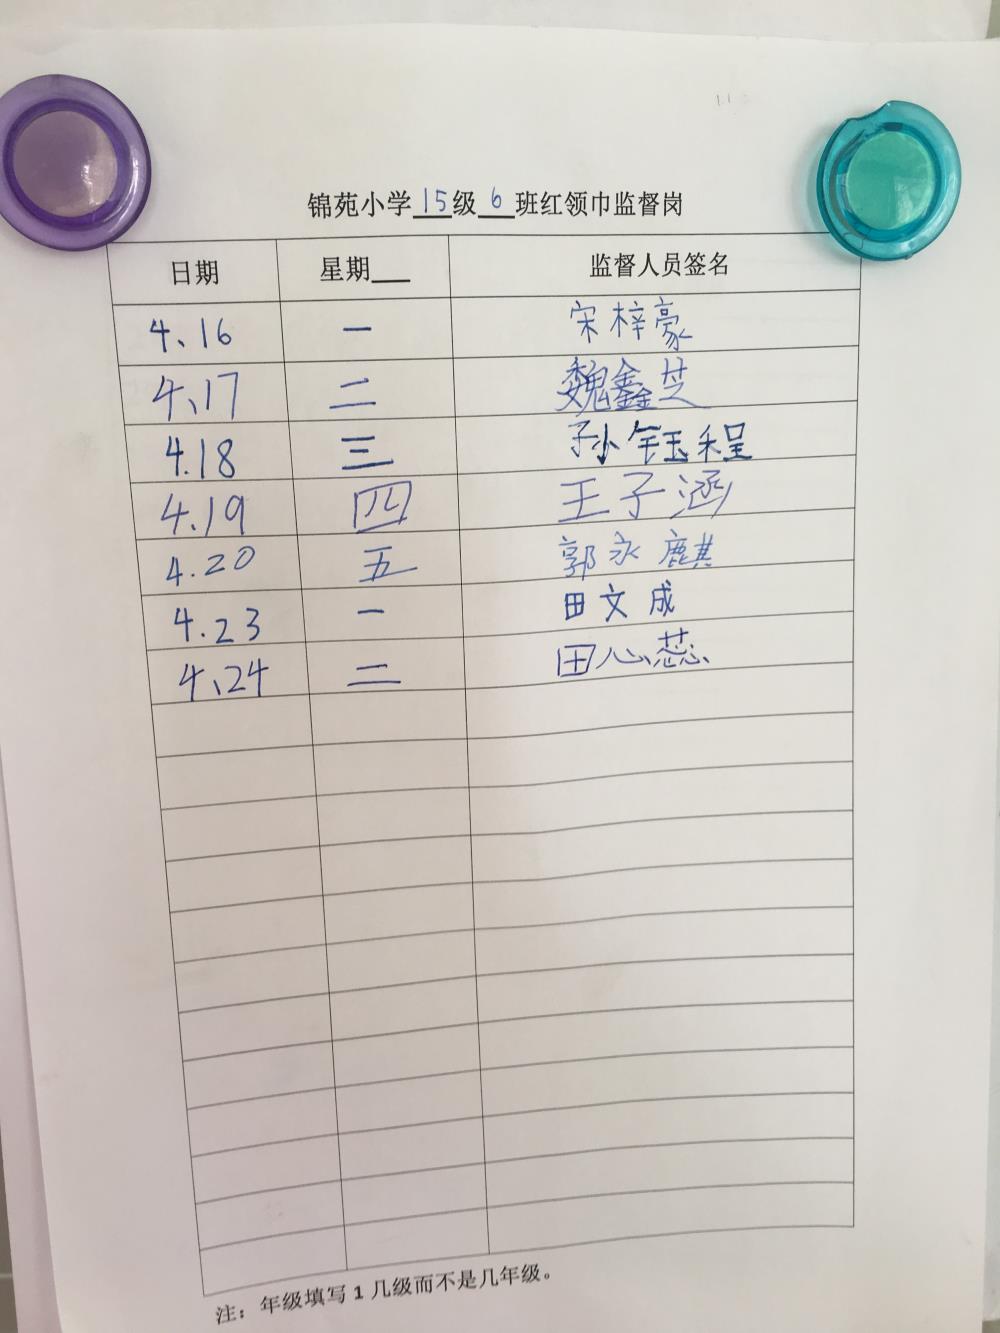 锦苑小学15级6班红领巾监督岗
日期 星期 监督人员签名
4、16 一 宋梓豪
4、17 二 魏鑫芝
4.18 三 孙钰程
4.19 四 王子涵
4.20 五 郭永麒
4.23 一 田文成
4、24 二 田心蕊
注：年级填写1几级而不是几年级。